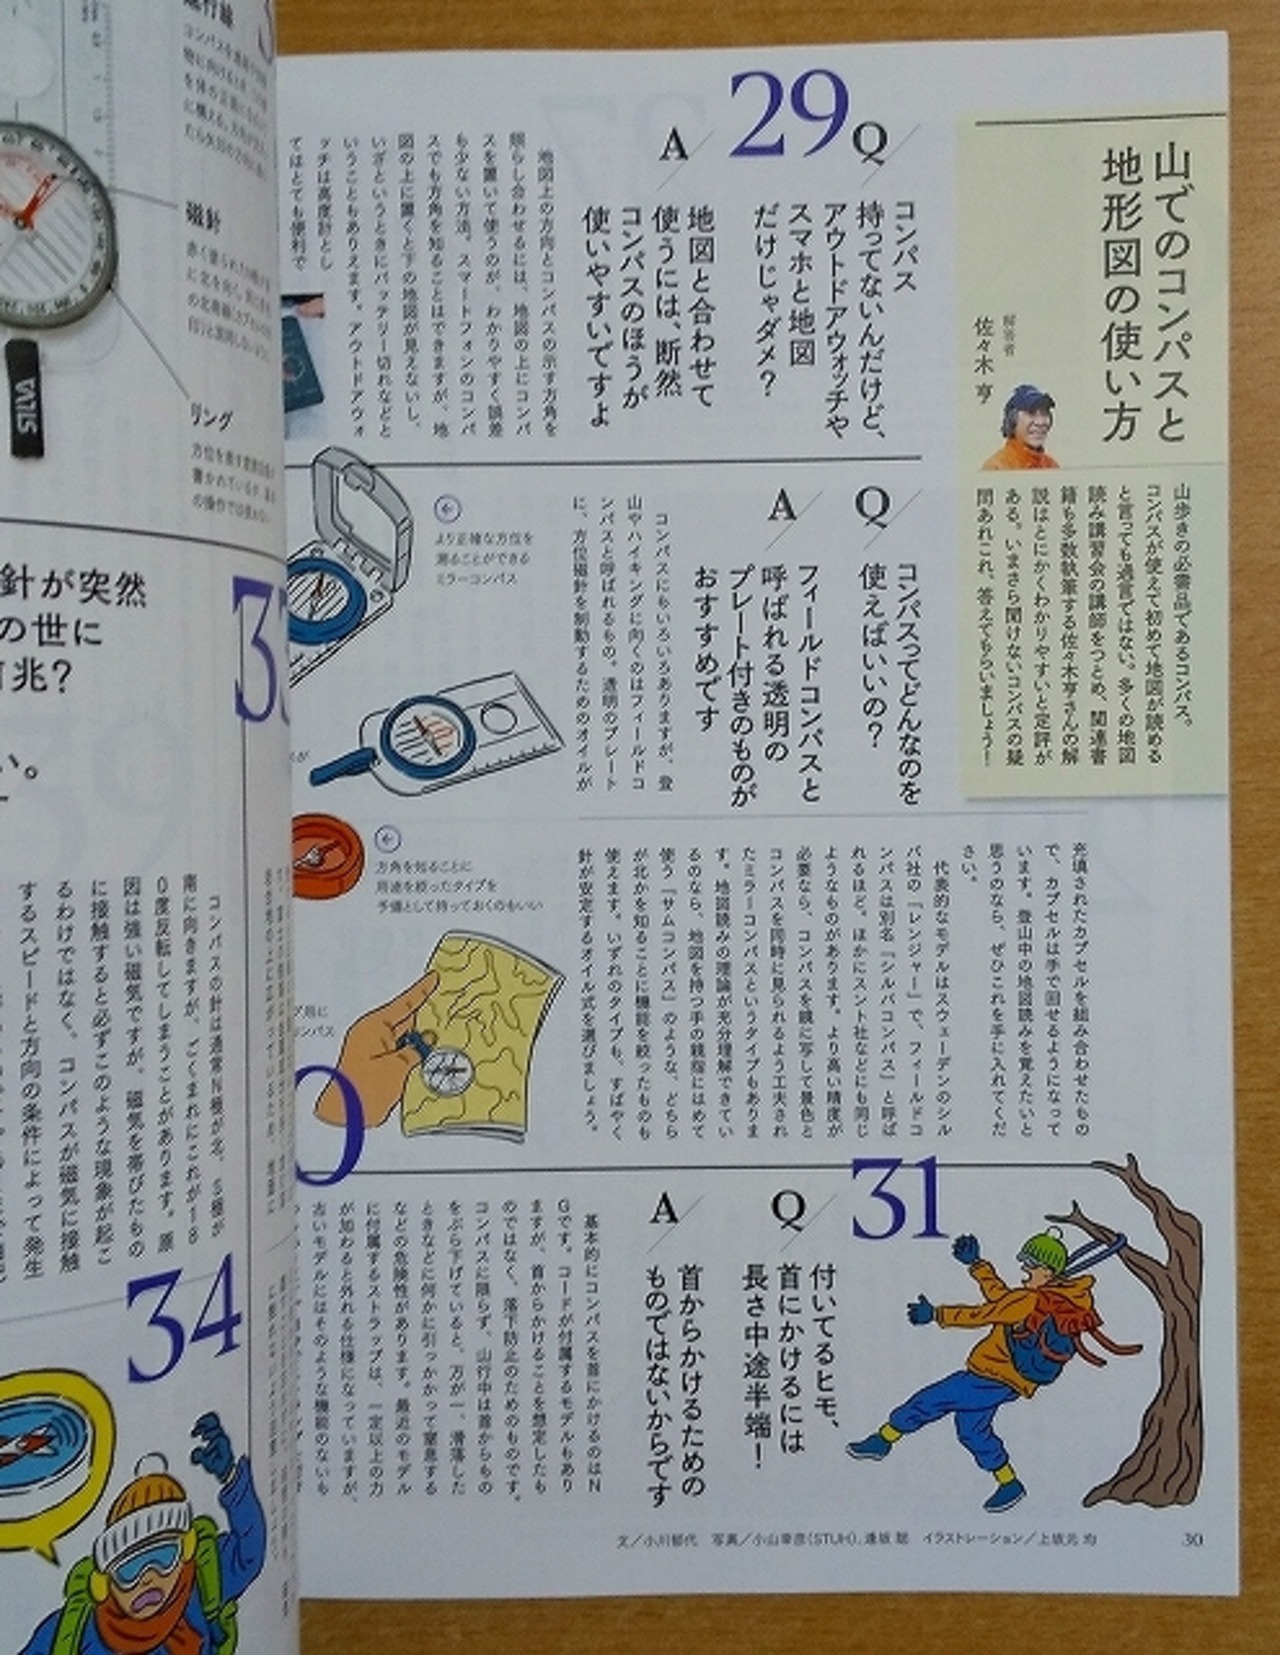 山でのコンパスと
地形図の使い方
解答者
佐々木 亨
山歩きの必需品であるコンパス。
コンパスが使えて初めて地図が読める
と言っても過言ではない。多くの地図
読み講習会の講師をつとめ、関連書
籍も多数執筆する佐々木亨さんの解
説はとにかくわかりやすいと定評が
ある。いまさら聞けないコンパスの疑
問あれこれ、答えてもらいましょう!
29
Q
コンパス
持ってないんだけど、
アウトドアウォッチや
スマホと地図
だけじゃダメ?
A
地図と合わせて
使うには、断然
コンパスのほうが
使いやすいですよ
地図上の方向とコンパスの示す方角を
照らし合わせるには、地図の上にコンパ
スを置いて使うのが、わかりやすく誤差
も少ない方法。スマートフォンのコンパ
スでも方角を知ることはできますが、地
図の上に置くと下の地図が見えないし、
いざというときにバッテリー切れなどと
いうこともありえます。アウトドアウォ
ッチは高度計とし
てはとても便利で
Q
コンパスってどんなのを
使えばいいの?
A
フィールドコンパスと
呼ばれる透明の
プレート付きのものが
おすすめです
コンパスにもいろいろありますが、登
山やハイキングに向くのはフィールドコ
ンパスと呼ばれるもの。透明のプレート
に、方位磁針を制動するためのオイルが
充填されたカプセルを組み合わせたもの
で、カプセルは手で回せるようになって
います。登山中の地図読みを覚えたいと
思うのなら、ぜひこれを手に入れてくだ
さい。
代表的なモデルはスウェーデンのシル
バ社の「レンジャー」で、フィールドコ
ンパスは別名『シルバコンパス』と呼ば
れるほど。ほかにスント社などにも同じ
ようなものがあります。より高い精度が
必要なら、コンパスを鏡に写して景色と
コンパスを同時に見られるよう工夫され
たミラーコンパスというタイプもありま
す。地図読みの理論が充分理解できてい
るのなら、地図を持つ手の親指にはめて
使う「サムコンパス」のような、どちら
が北かを知ることに機能を絞ったものも
使えます。いずれのタイプも、すばやく
針が安定するオイル式を選びましょう。
より正確な方位を
測ることができる
ミラーコンパス
方角を知ることに
用途を絞ったタイプを
予備として持っておくのもいい
0
31
Q
付いてるヒモ、
首にかけるには
長さ中途半端!
A
首からかけるための
ものではないからです
基本的にコンパスを首にかけるのはN
Gです。コードが付属するモデルもあり
ますが、首からかけることを想定したも
のではなく、落下防止のためのものです。
コンパスに限らず、山行中は首からもの
をぶら下げていると、万が一、滑落した
ときなどに何かに引っかかって窒息する
などの危険性があります。最近のモデル
に付属するストラップは、一定以上の力
が加わると外れる仕様になっていますが、
古いモデルにはそのような機能のないも
文/小川郁代 写真/小山幸彦(STUH)、逢坂 聡 イラストレーション/上坂元 均
30
磁針
リング
SILVA
針が突然
の世に
兆?
い。
3
コンパスの針は通常N極が北、S極が
南に向きますが、ごくまれにこれが18
0度反転してしまうことがあります。原
因は強い磁気ですが、磁気を帯びたもの
に接触すると必ずこのような現象が起こ
るわけではなく、コンパスが磁気に接触
するスピードと方向の条件によって発生
34